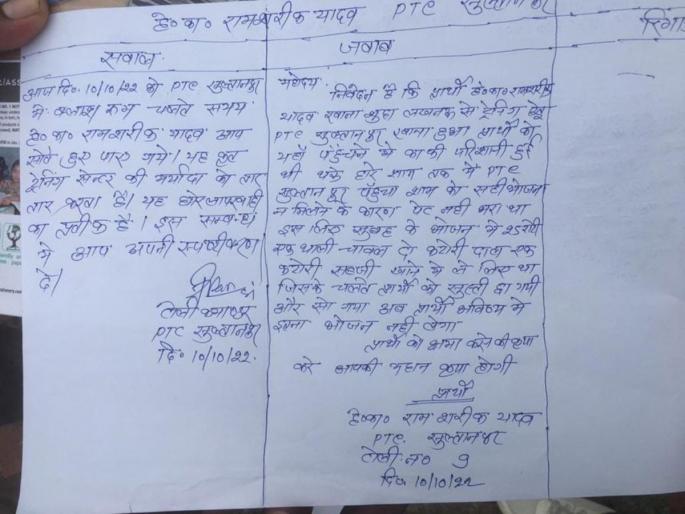 हे० का० रामशरीक यादव PTC सुल्तानपुर
सवाल
आप दि० 10/10/22 को PTC सुल्तानपुर
में क्लास रूम चलते समय
हे० का० रामशरीक यादव आप
सोते हुए पाए गये। यह कृत
ट्रेनिंग सेन्टर की मर्यादा को तार
तार करता है। यह घोर लापरवाही
का प्रतीक है। इस सम्बन्ध
में आप अपनी स्पष्टीकरण
दे।
टोली कमाण्डर
PTC सुल्तानपुर
दि० 10/10/22.
जवाब
महोदय
निवेदन है कि प्रार्थी हे० का० रामशरीक
यादव रवाना शुदा लखनऊ से ट्रेनिंग हेतु
PTC सुल्तानपुर रवाना हुआ प्रार्थी को
यहाँ पहुँचने में काफी परिशानी हुई
थी थके हारे शाम तक में PTC
सुल्तानपुर पहुँचा शाम को सही भोजन
न मिलने के कारण पेट नही भरा था
इस लिए सुबह के भोजन में 25 रोटी
एक थाली चावल दो कटोरी दाल एक
कटोरी सब्जी खाने में ले लिए था
जिसके चलते प्रार्थी को सुस्ती छा गयी
और सो गया अब प्रार्थी भविष्य में
इतना भोजन नही लेगा
प्रार्थी को क्षमा करने की कृपा
करे आपकी महान कृपा होगी
प्रार्थी
हे० का० राम शरीक यादव
PTC. सुल्तानपुर
टोली न० 9
दि० 10/10/22